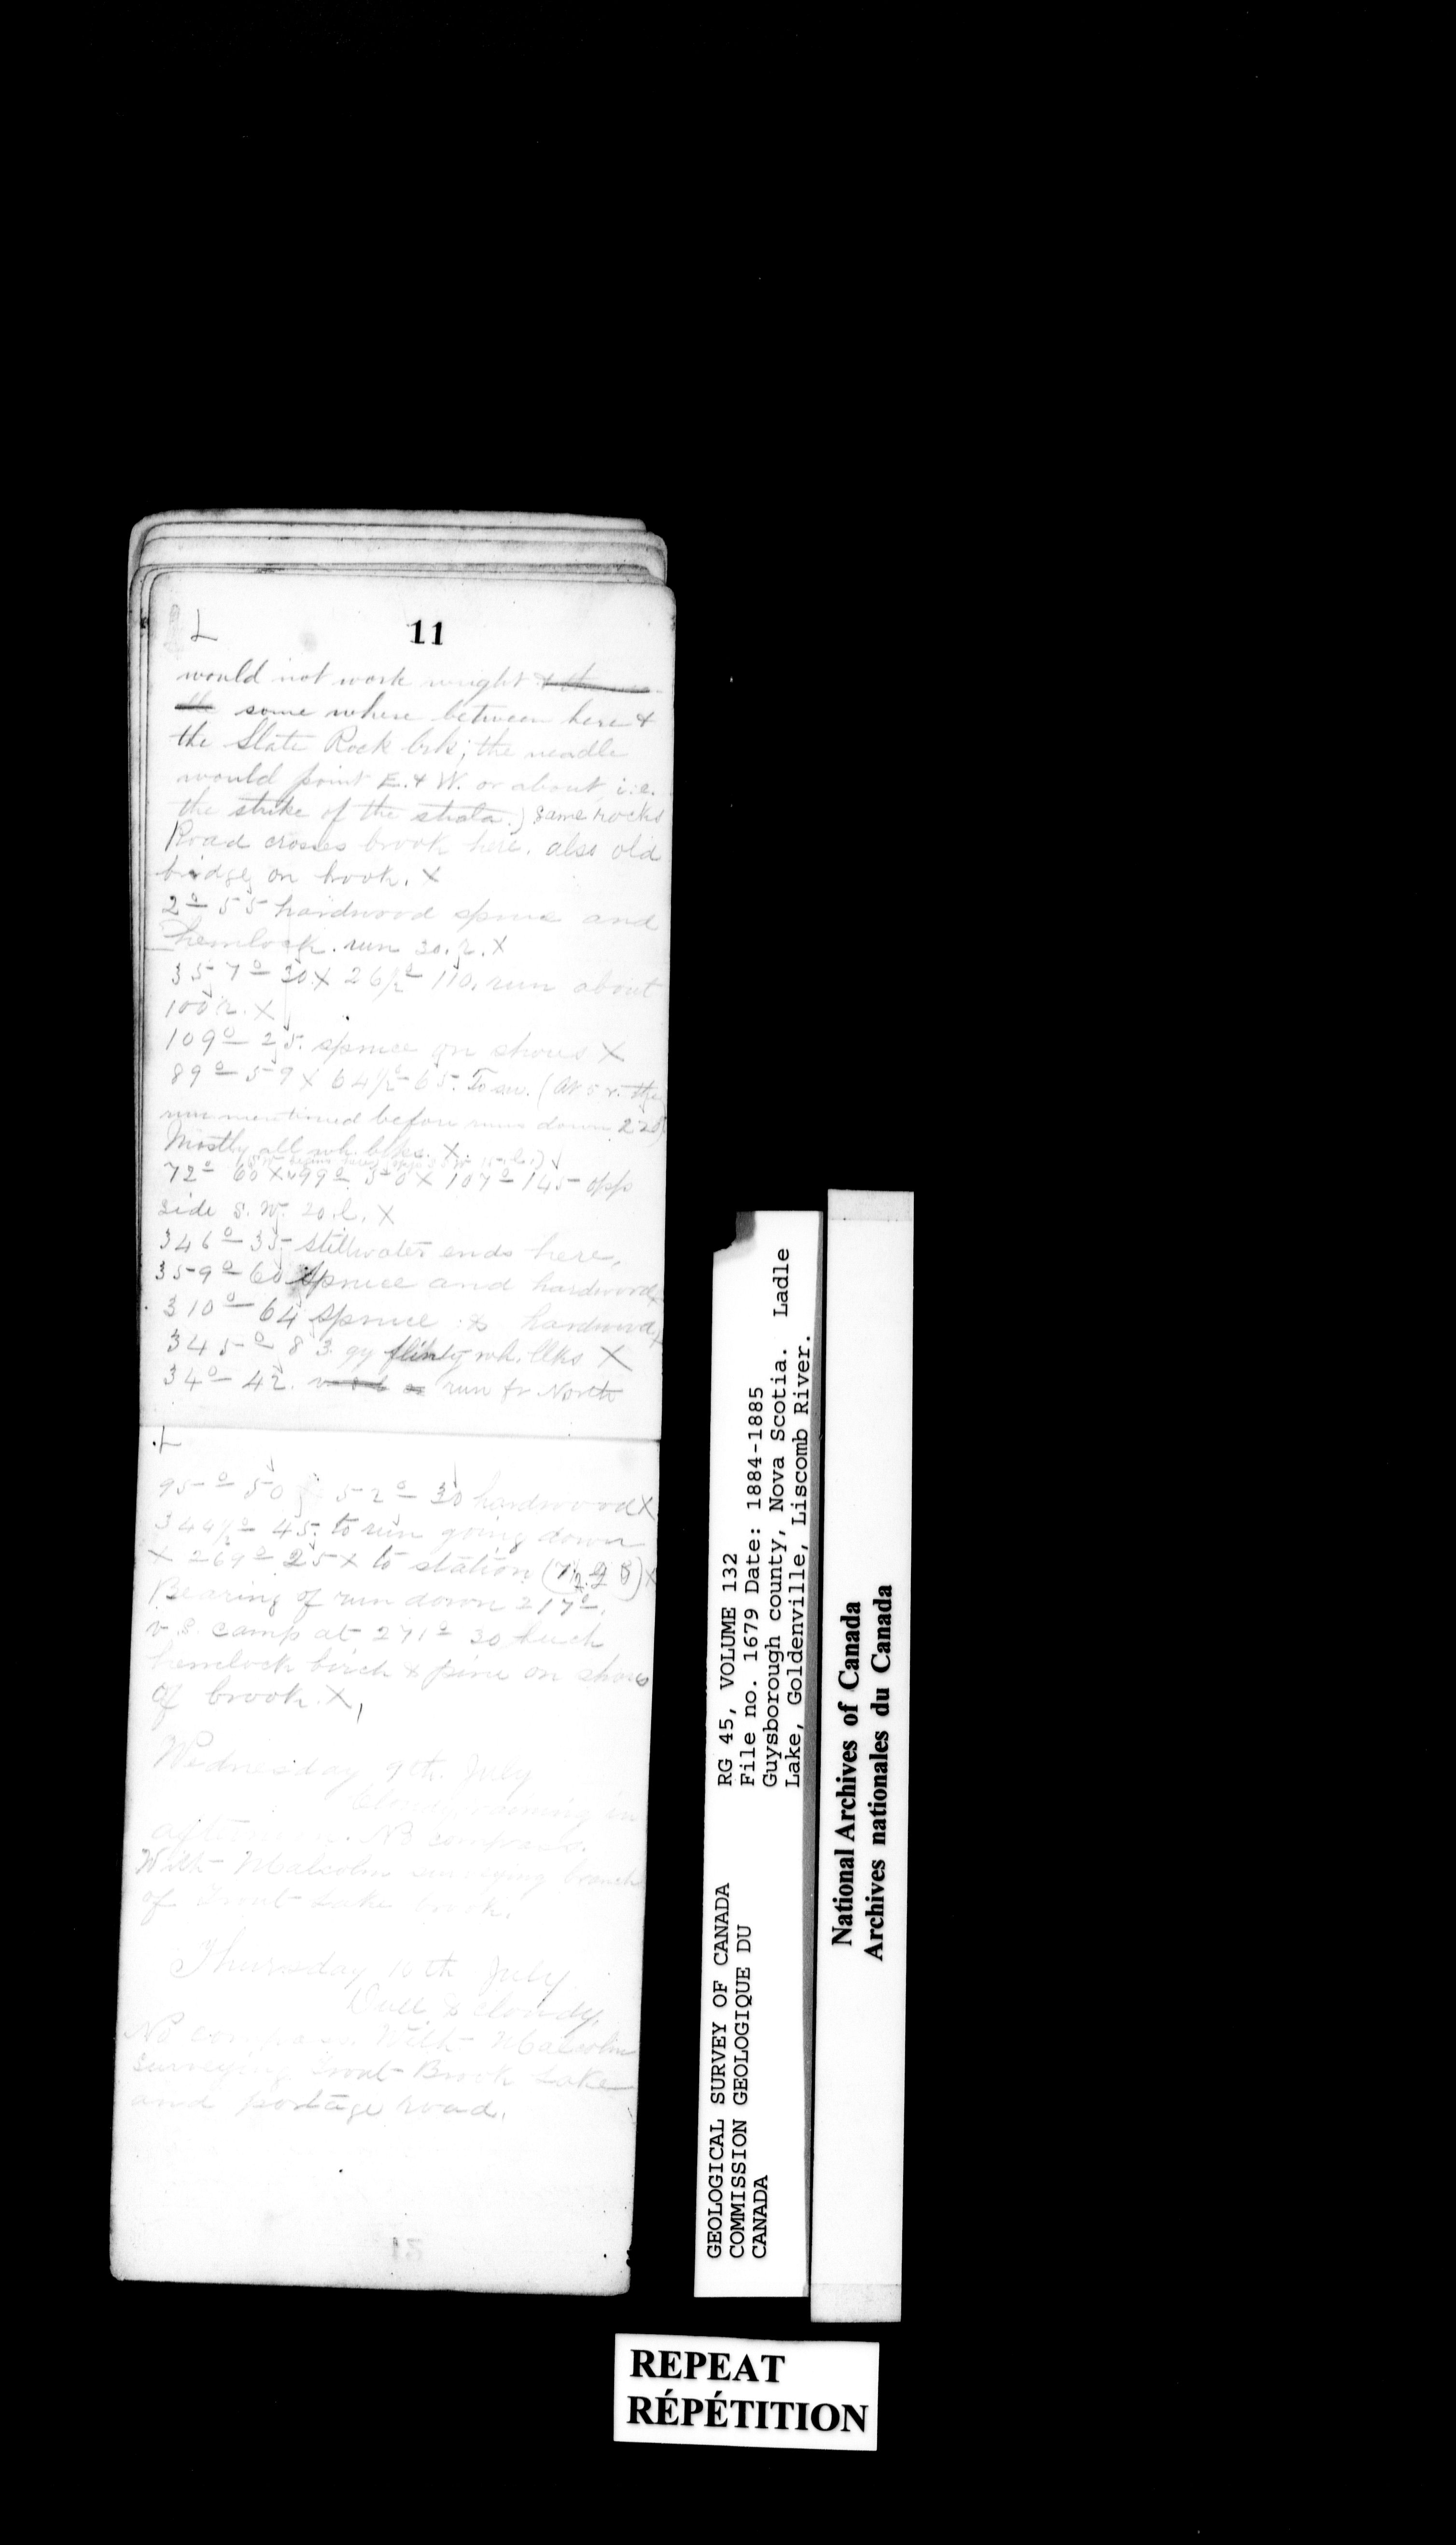 L
11
would not work wright
some where between here &
the Slate Rock brk; the neadle
would point E. & W. or about, i.e.
the strike of the strata.) Same rocks
Road crosses brook here. also old
bridge on brook. X
2° 55 hardwood spruce and
hemlock. run 30. r. X
357° 30. X 26½° 110. run about
100 r. X
109° 25. spruce on shores X
89° 59 X 64½° 65. To sw. (At 5 r. the
run mentioned before runs down 220)
Mostly all wh. blks. X
72° 60 X 99° 50 X 107° 145 opp
side S. W. 20. l. X
346° 35. stillwater ends here,
359° 60 Spruce and hardwood X
310° 64 Spruce & hardwood X
345° 83. gy flinty wh. blks X
34° 42. run fr North
L
95° 50 52° 30 hardwood X
344½° 45. to run going down
X 267° 25 X to station
Bearing of run down 217°.
camp at 271° 30
hemlock birch & pine on shores
of brook. X
Wednesday 9th. July
raining in
afternoon. No compass.
With Malcolm surveying branch
of Trout Lake brook.
Thursday 10th July
Dull & cloudy,
No compass. With Malcolm
surveying Trout Brook Lake
and portage road.
12
GEOLOGICAL SURVEY OF CANADA
COMMISSION GEOLOGIQUE DU
CANADA
RG 45, VOLUME 132
File no. 1679 Date: 1884-1885
Guysborough county, Nova Scotia. Ladle
Lake, Goldenville, Liscomb River.
National Archives of Canada
Archives nationales du Canada
REPEAT
RÉPÉTITION